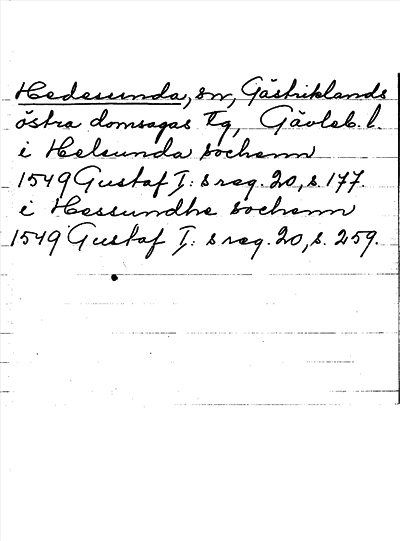 Hedesunda, sn, Gästriklands
östra domsagas tlg, Gävleb. l.
i Helsunda sochenn
1549 Gustaf I:s reg. 20, s. 177.
i Hessundhe sochenn
1549 Gustaf I:s reg. 20, s. 259.